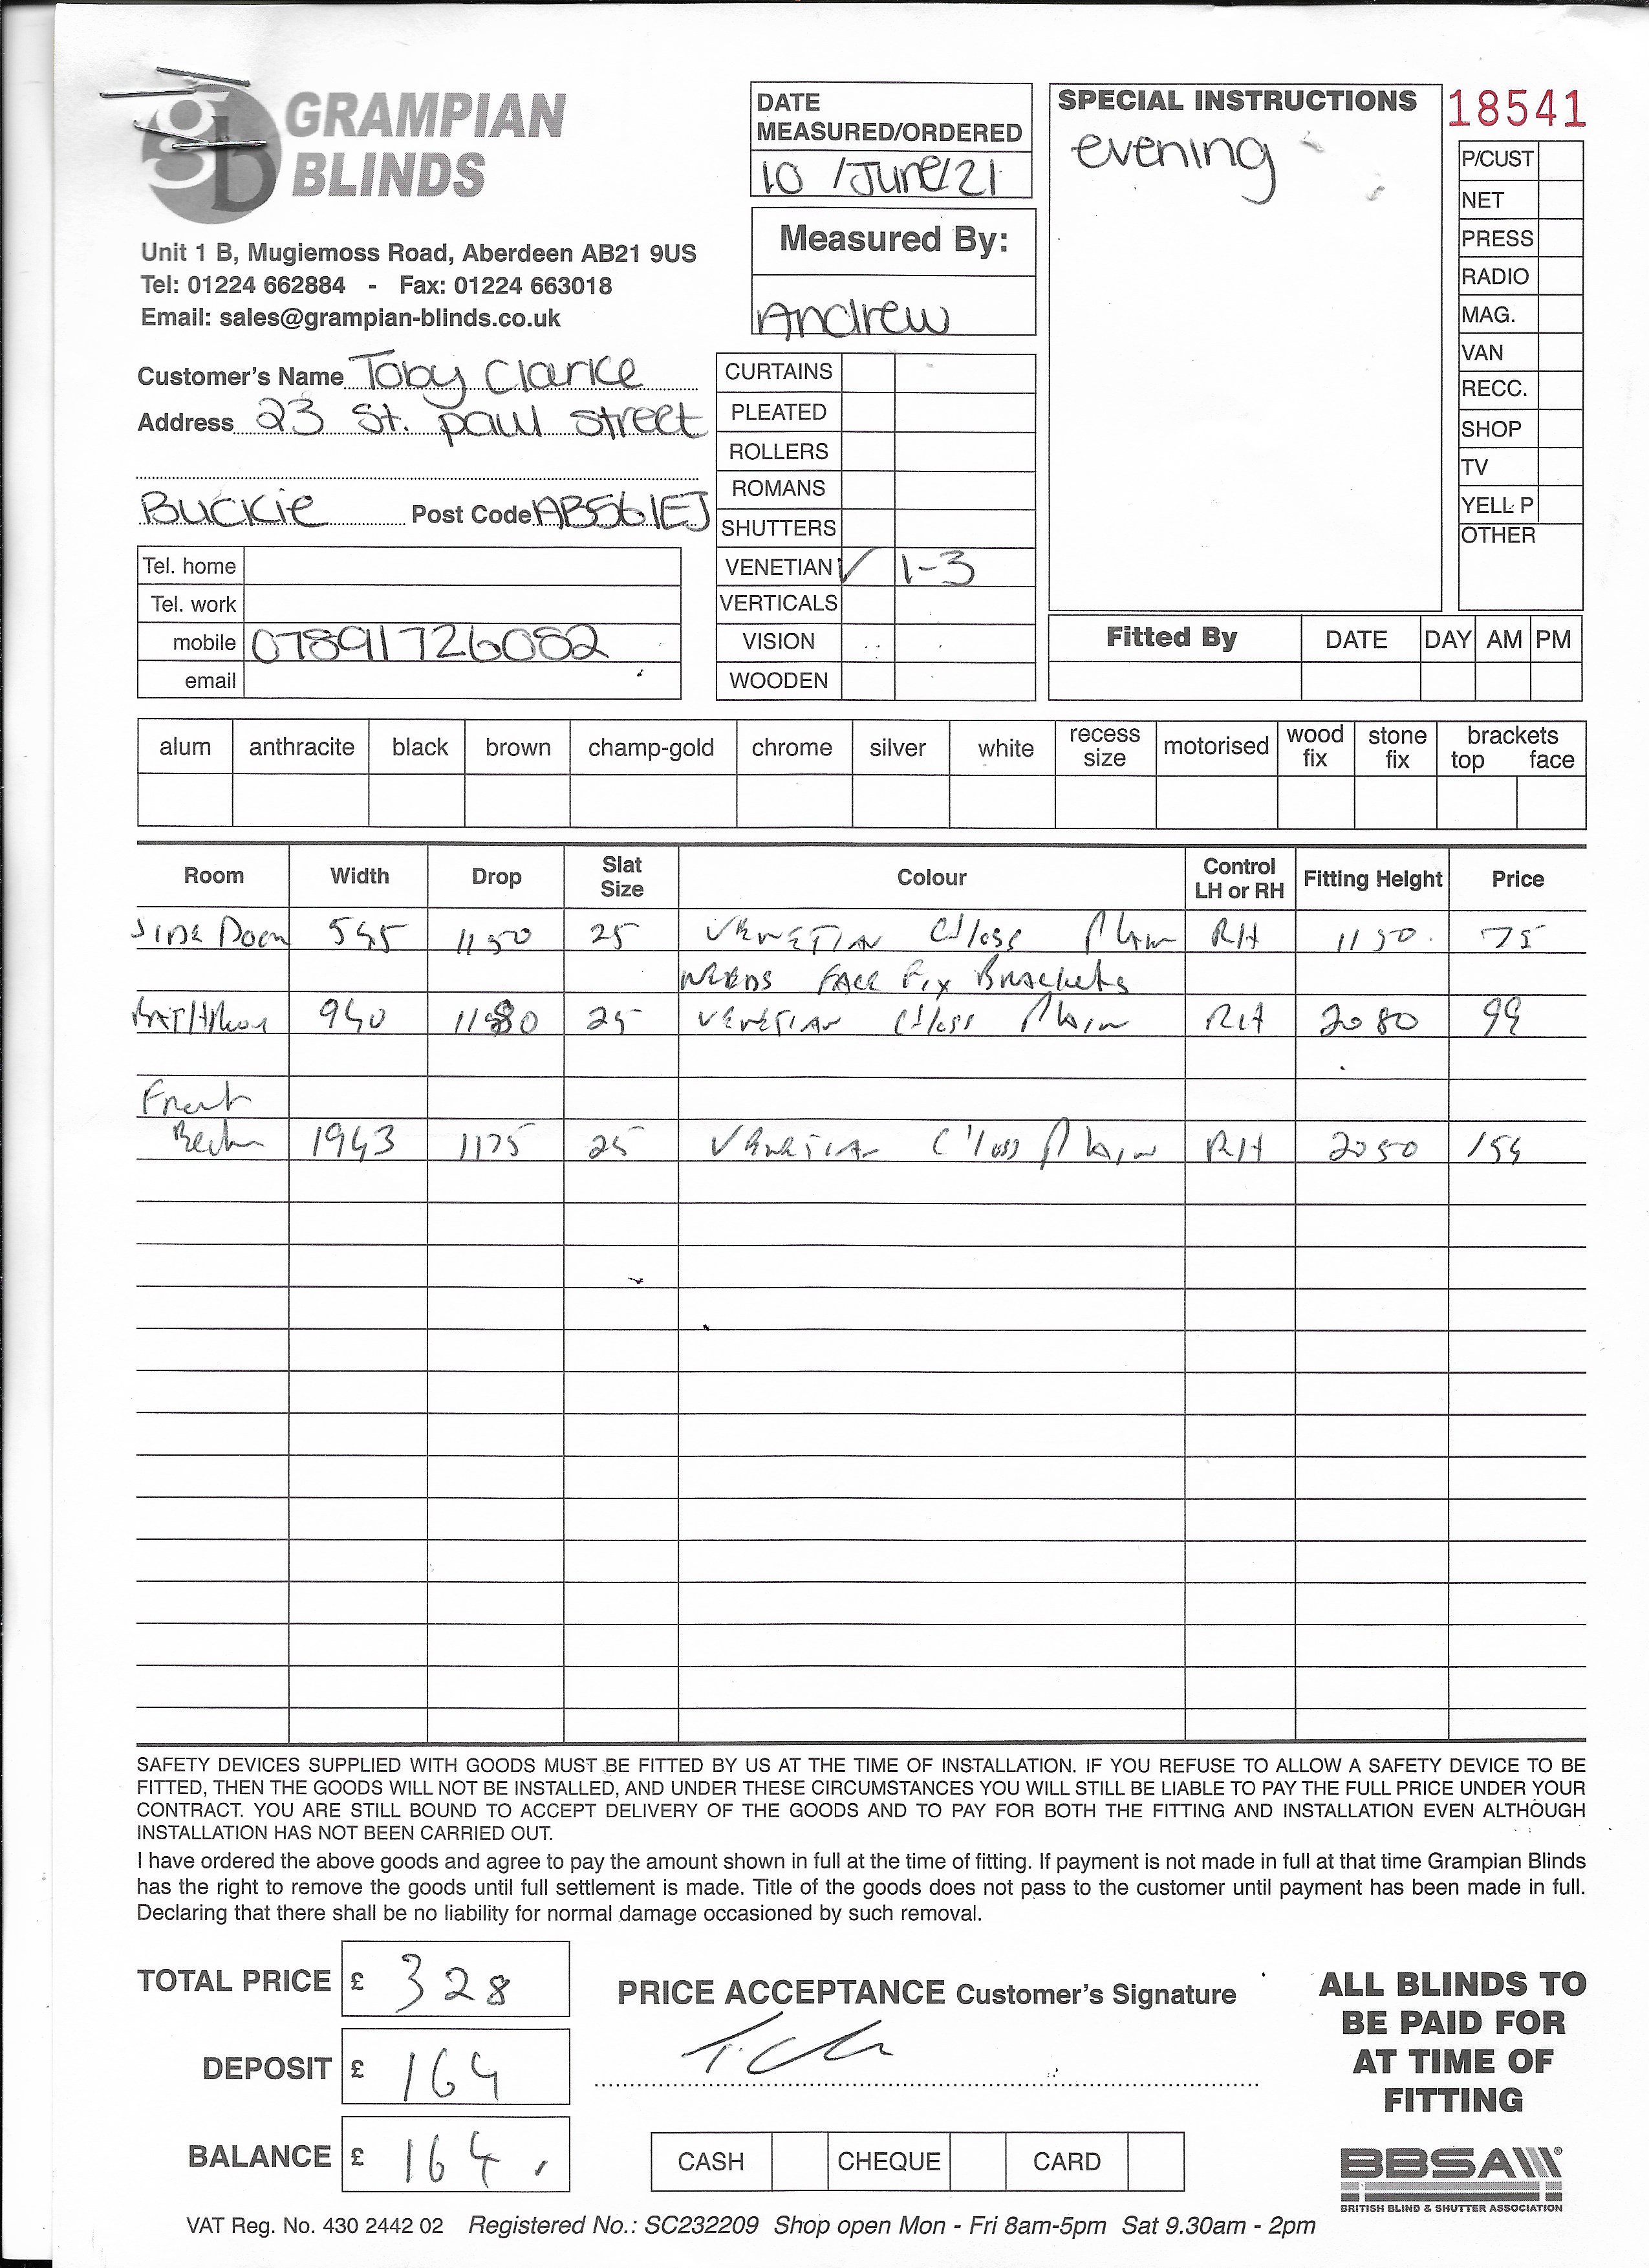 GRAMPIAN
BLINDS
Unit 1 B, Mugiemoss Road, Aberdeen AB21 9US
Tel: 01224 662884 - Fax: 01224 663018
Email: sales@grampian-blinds.co.uk
DATE
MEASURED/ORDERED
10 /June/21
Measured By:
Andrew
SPECIAL INSTRUCTIONS
evening
18541
P/CUST
NET
PRESS
RADIO
MAG.
VAN
RECC.
SHOP
TV
YELL P
OTHER
Customer's Name Toby Clarke
Address 23 St. paul street
Buckie Post Code AB561EJ
Tel. home
Tel. work
mobile 07891726082
email
CURTAINS
PLEATED
ROLLERS
ROMANS
SHUTTERS
VENETIAN ✓ 1-3
VERTICALS
VISION
WOODEN
Fitted By DATE DAY AM PM
alum anthracite black brown champ-gold chrome silver white recess size motorised wood fix stone fix brackets top face
Room Width Drop Slat Size Colour Control LH or RH Fitting Height Price
SIDE Door 545 1150 25 VENETIAN Plain RH 1150 75
NEEDS FACE Fix Brackets
BATHRoom 940 1180 25 VENETIAN Plain RH 2080 99
Front
1943 1175 25 VENETIAN Plain RH 2050 154
SAFETY DEVICES SUPPLIED WITH GOODS MUST BE FITTED BY US AT THE TIME OF INSTALLATION. IF YOU REFUSE TO ALLOW A SAFETY DEVICE TO BE
FITTED, THEN THE GOODS WILL NOT BE INSTALLED, AND UNDER THESE CIRCUMSTANCES YOU WILL STILL BE LIABLE TO PAY THE FULL PRICE UNDER YOUR
CONTRACT. YOU ARE STILL BOUND TO ACCEPT DELIVERY OF THE GOODS AND TO PAY FOR BOTH THE FITTING AND INSTALLATION EVEN ALTHOUGH
INSTALLATION HAS NOT BEEN CARRIED OUT.
I have ordered the above goods and agree to pay the amount shown in full at the time of fitting. If payment is not made in full at that time Grampian Blinds
has the right to remove the goods until full settlement is made. Title of the goods does not pass to the customer until payment has been made in full.
Declaring that there shall be no liability for normal damage occasioned by such removal.
TOTAL PRICE £ 328
DEPOSIT £ 164
BALANCE £ 164
PRICE ACCEPTANCE Customer's Signature
CASH CHEQUE CARD
ALL BLINDS TO
BE PAID FOR
AT TIME OF
FITTING
BBSA
BRITISH BLIND & SHUTTER ASSOCIATION
VAT Reg. No. 430 2442 02 Registered No.: SC232209 Shop open Mon - Fri 8am-5pm Sat 9.30am - 2pm